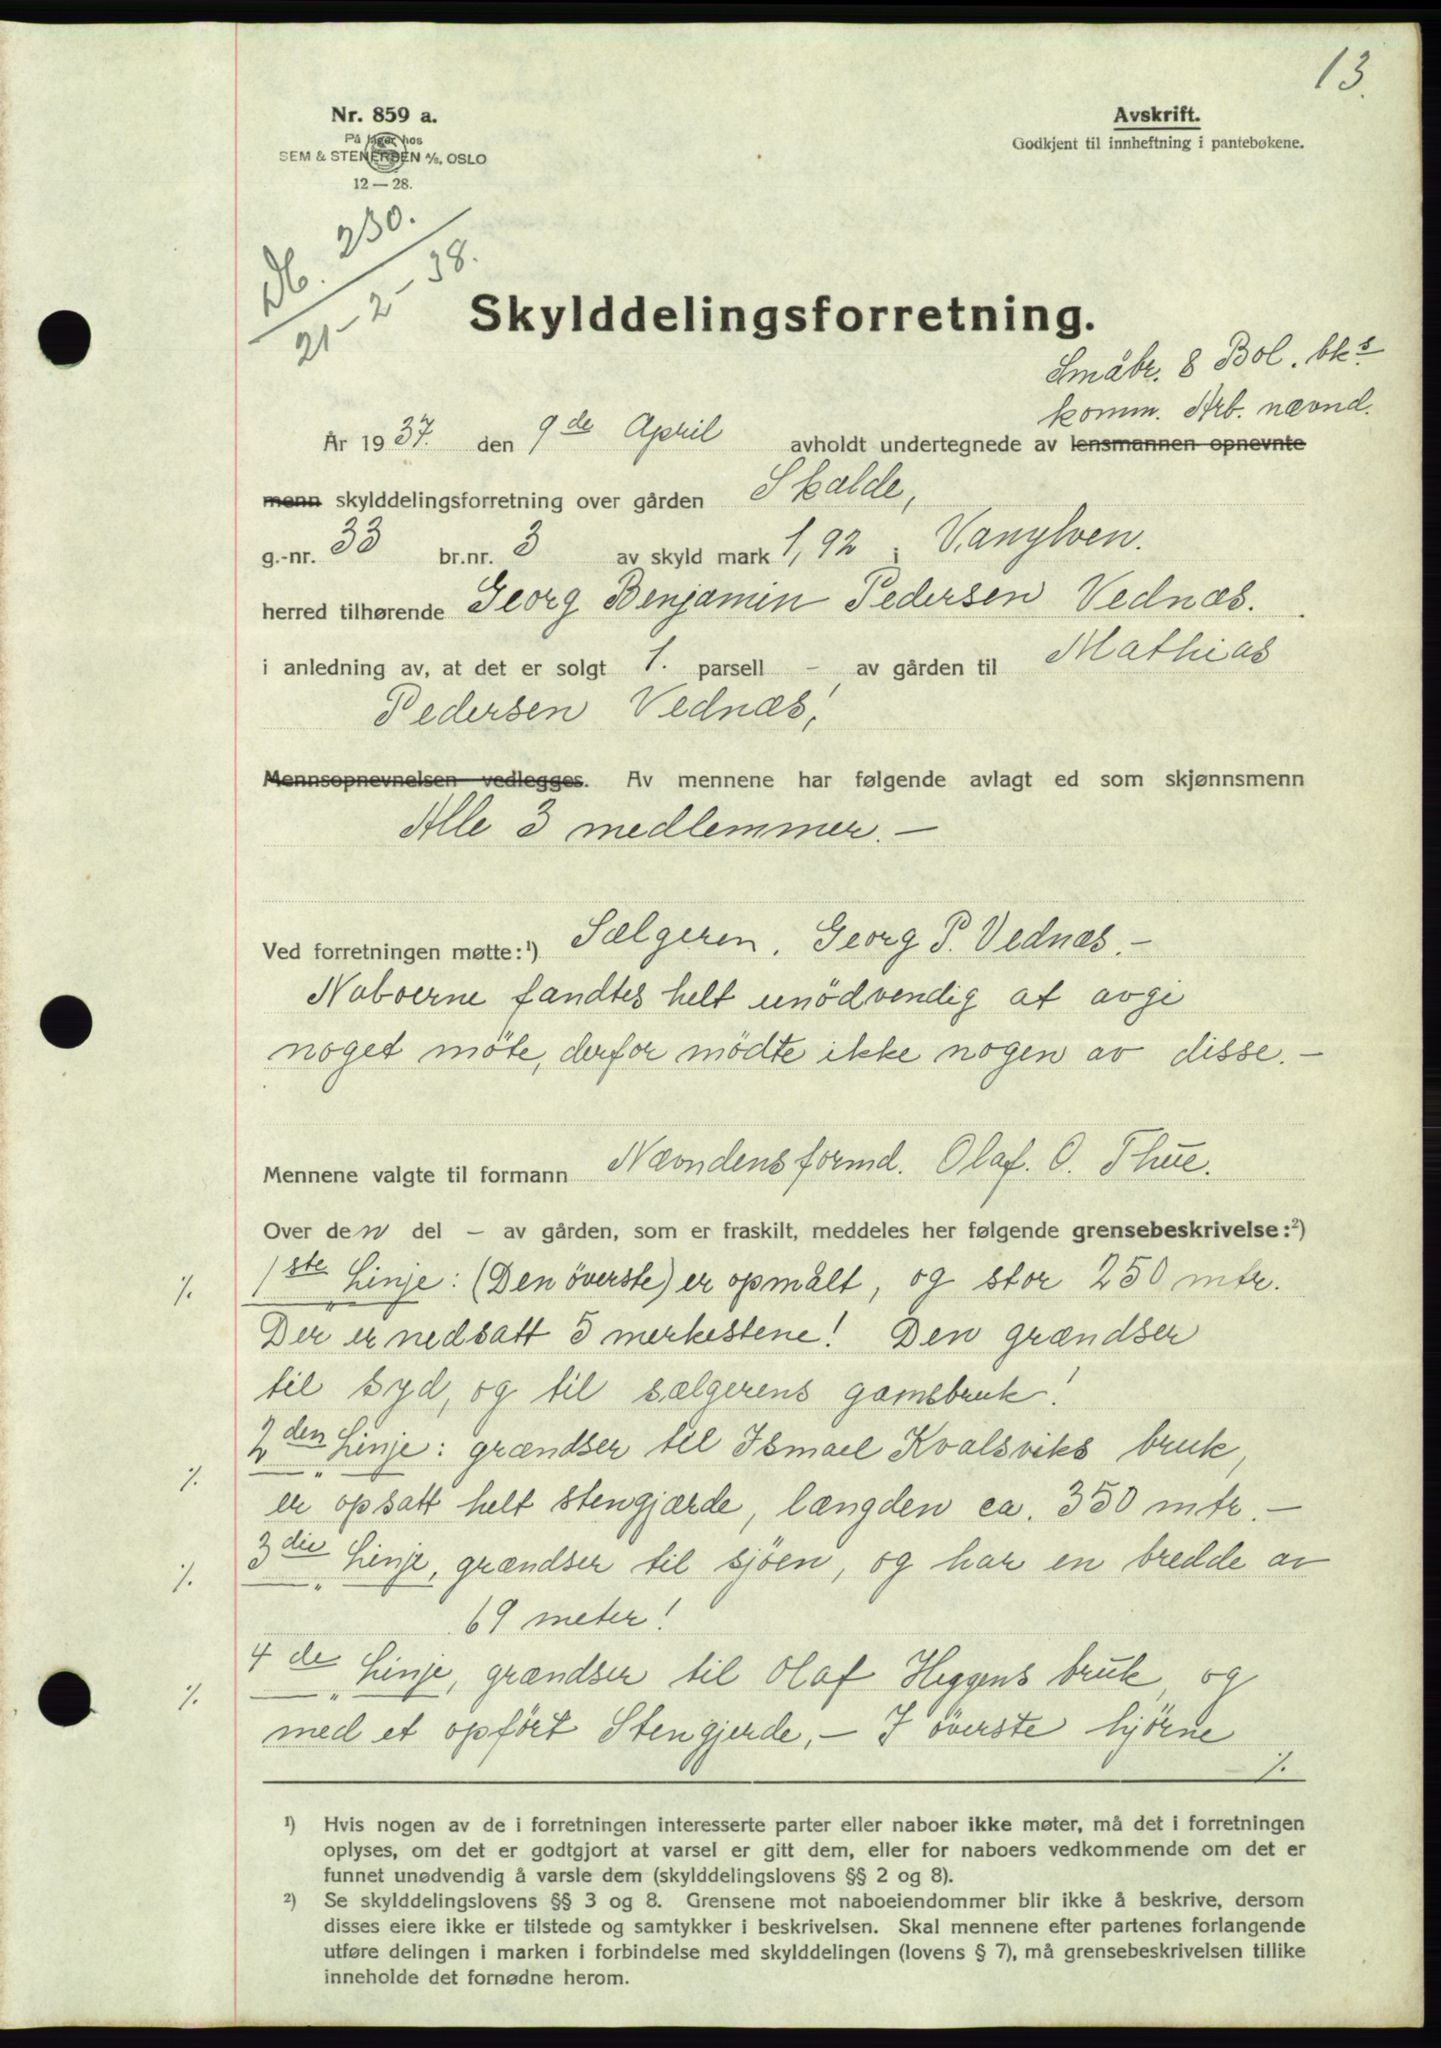 13.
Nr. 859 a.
På lager hos
SEM & STENERSEN A/S, OSLO
12 — 28.
Avskrift.
Godkjent til innheftning i pantebøkene.
Db. 230.
21-2-38.
Skylddelingsforretning.
Småbr. & Bol. bks
komm. Arb. nævnd.
År 1937. den 9de April avholdt undertegnede av lensmannen opnevnte
menn skylddelingsforretning over gården Skalde,
g.-nr. 33 br.nr. 3 av skyld mark 1,92 i Vanylven.
herred tilhørende Georg Benjamin Pedersen Vednæs.
i anledning av, at det er solgt 1. parsell - av gården til Mathias
Pedersen Vednæs!
Mennsopnevnelsen vedlegges. Av mennene har følgende avlagt ed som skjønnsmenn
Alle 3 medlemmer. —
Ved forretningen møtte:¹) Sælgeren. Georg P. Vednæs. —
Naboerne fandtes helt unödvendig at avgi
noget möte, derfor mödte ikke nogen av disse. —
Mennene valgte til formann Nævndens formd. Olaf. O. Thue.
Over den del — av gården, som er fraskilt, meddeles her følgende grensebeskrivelse:²)
%. 1ste Linje: (Den överste) er opmålt, og stor 250 mtr.
Der er nedsatt 5 merkestene! Den grændser
til syd, og til sælgerens gamsbruk!
2den Linje: grændser til Ismael Kvalsviks bruk,
%. er opsatt helt stengjærde, længden ca. 350 mtr. —
%. 3die Linje, grændser til sjöen, og har en bredde av
69 meter!
4de Linje, grændser til Olaf Heggens bruk, og
%. med et opfört Stengjerde, — I överste hjörne
%.
¹) Hvis nogen av de i forretningen interesserte parter eller naboer ikke møter, må det i forretningen
oplyses, om det er godtgjort at varsel er gitt dem, eller for naboers vedkommende om det er
funnet unødvendig å varsle dem (skylddelingslovens §§ 2 og 8).
²) Se skylddelingslovens §§ 3 og 8. Grensene mot naboeiendommer blir ikke å beskrive, dersom
disses eiere ikke er tilstede og samtykker i beskrivelsen. Skal mennene efter partenes forlangende
utføre delingen i marken i forbindelse med skylddelingen (lovens § 7), må grensebeskrivelsen tillike
inneholde det fornødne herom.